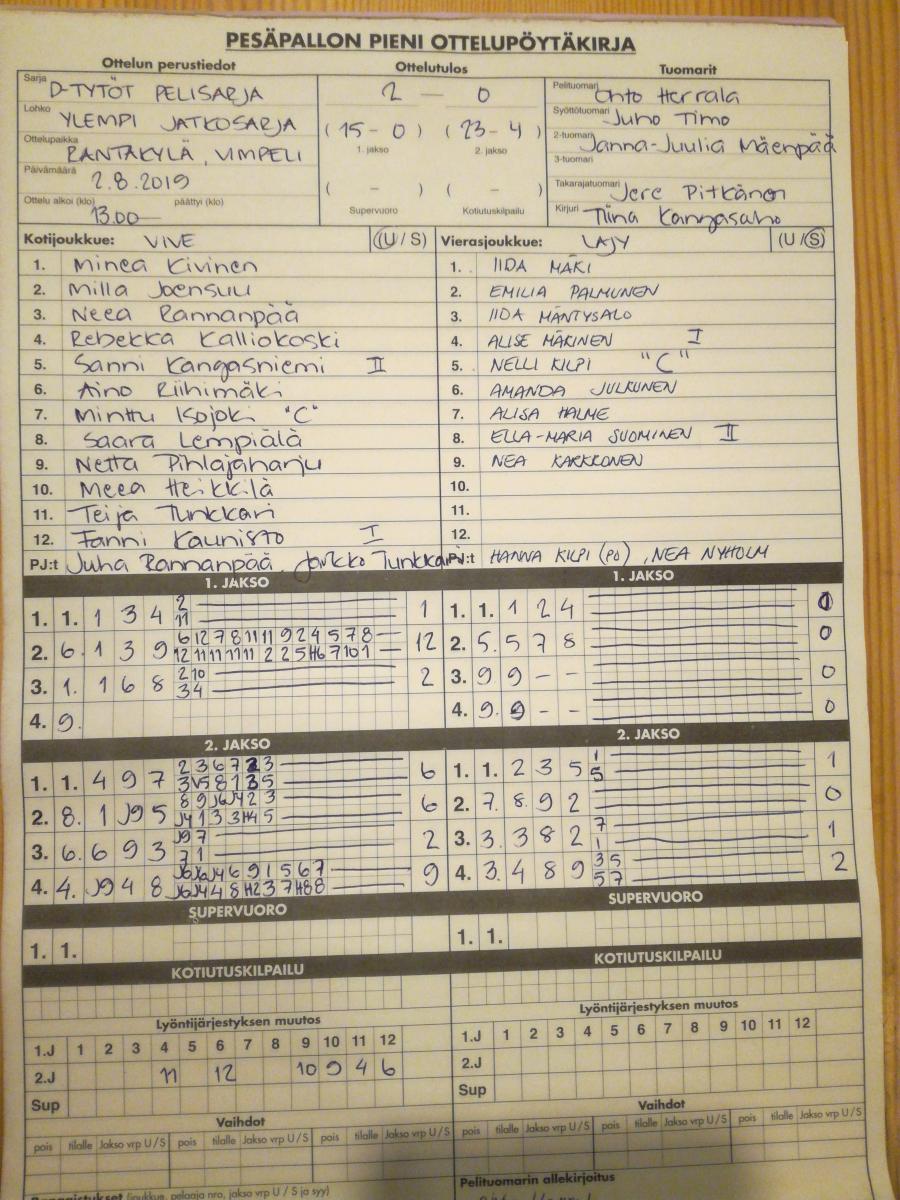 PESÄPALLON PIENI OTTELUPÖYTÄKIRJA
Ottelun perustiedot Ottelutulos Tuomarit
Sarja D-TYTÖT PELISARJA
Lohko YLEMPI JATKOSARJA
Ottelupaikka RANTAKYLÄ, VIMPELI
Päivämäärä 2.8.2019
Ottelu alkoi (klo) 13.00 päättyi (klo)
2 — 0
(15 - 0) (23 - 4)
1. jakso 2. jakso
( - ) ( - )
Supervuoro Kotiutuskilpailu
Pelituomari Ohto Herrala
Syöttötuomari Juho Timo
2-tuomari Janna-Juulia Mäenpää
3-tuomari
Takarajatuomari Jere Pitkänen
Kirjuri Tiina Kangasaho
Kotijoukkue: VIVE (U / S)
1. Minea Kivinen
2. Milla Joensuu
3. Neea Rannanpää
4. Rebekka Kalliokoski
5. Sanni Kangasniemi II
6. Aino Riihimäki
7. Minttu Isojoki "C"
8. Saara Lempiälä
9. Netta Pihlajaharju
10. Meea Heikkilä
11. Teija Tunkkari
12. Fanni Kaunisto I
PJ:t Juha Rannanpää, Jarkko Tunkkari
Vierasjoukkue: LAJY (U / S)
1. IIDA MÄKI
2. EMILIA PALMUNEN
3. IIDA MÄNTYSALO
4. ALISE MÄKINEN I
5. NELLI KILPI "C"
6. AMANDA JULKUNEN
7. ALISA HALME
8. ELLA-MARIA SUOMINEN II
9. NEA KARKKONEN
10.
11.
12.
PJ:t HANNA KILPI (PO), NEA NYHOLM
1. JAKSO
1. 1. 1 3 4 2 11 1
2. 6. 1 3 9 6 12 7 8 11 11 9 2 4 5 7 8 12
3. 1. 1 6 8 2 10 3 4 2
4. 9.
1. JAKSO
1. 1. 1 2 4 0
2. 5. 5 7 8 0
3. 9 9 - - 0
4. 9. 9 - - 0
2. JAKSO
1. 1. 4 9 7 6
2. 8. 1 J9 5 6
3. 6. 6 9 3 J9 7 7 1 2
4. 4. J9 4 8 9
2. JAKSO
1. 1. 2 3 5 1 5 1
2. 7. 8. 9 2 0
3. 3. 3 8 2 7 1 1
4. 3. 4 8 9 3 5 5 7 2
SUPERVUORO
1. 1.
SUPERVUORO
1. 1.
KOTIUTUSKILPAILU
KOTIUTUSKILPAILU
Lyöntijärjestyksen muutos
1.J 1 2 3 4 5 6 7 8 9 10 11 12
2.J 11 12 10 9 4 6
Sup
Lyöntijärjestyksen muutos
1.J 1 2 3 4 5 6 7 8 9 10 11 12
2.J
Sup
Vaihdot
pois tilalle Jakso vrp U / S pois tilalle Jakso vrp U / S pois tilalle Jakso vrp U / S
Vaihdot
pois tilalle Jakso vrp U / S pois tilalle Jakso vrp U / S pois tilalle Jakso vrp U / S
(joukkue, pelaaja nro, jakso vrp U / S ja syy)
Pelituomarin allekirjoitus